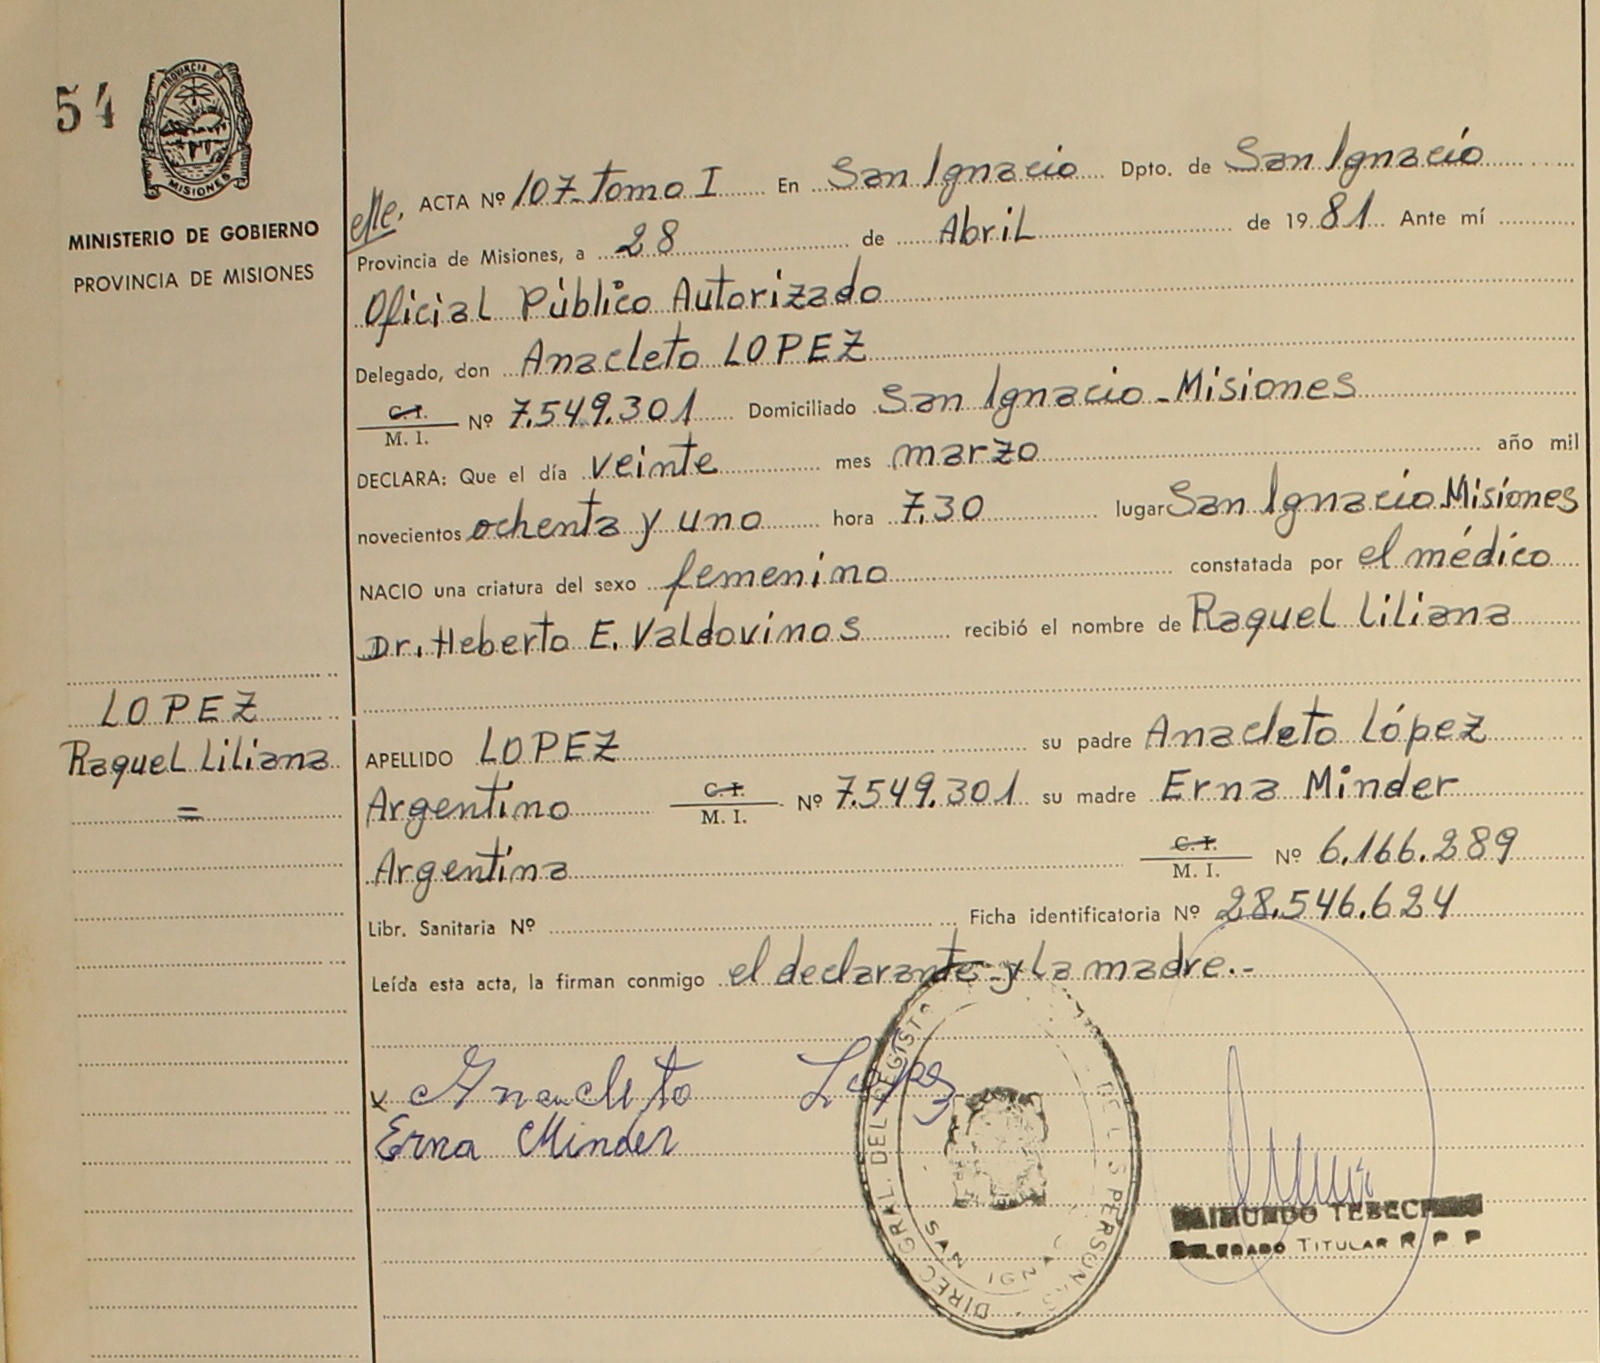 54
PROVINCIA DE
MISIONES
MINISTERIO DE GOBIERNO
PROVINCIA DE MISIONES
ACTA Nº 107 - Tomo I En San Ignacio Dpto. de San Ignacio
Provincia de Misiones, a 28 de Abril de 1981 Ante mí
Oficial Público Autorizado
Delegado, don Anacleto LOPEZ
C.I.
M. I. Nº 7.549.301 Domiciliado San Ignacio - Misiones
DECLARA: Que el día veinte mes marzo año mil
novecientos ochenta y uno hora 7.30 lugar San Ignacio Misiones
NACIO una criatura del sexo femenino constatada por el médico
Dr. Heberto E. Valdovinos recibió el nombre de Raquel Liliana
LOPEZ
Raquel Liliana
=
APELLIDO LOPEZ su padre Anacleto López
Argentino C.I. M. I. Nº 7.549.301 su madre Erna Minder
Argentina C.I. M. I. Nº 6.166.289
Libr. Sanitaria Nº Ficha identificatoria Nº 28.546.624
Leída esta acta, la firman conmigo el declarante y la madre.-
x Anacleto López
Erna Minder
DIREC. GRAL. DEL REGISTRO DE LAS PERSONAS
SAN IGNACIO
RAIMUNDO
DELEGADO TITULAR R P P